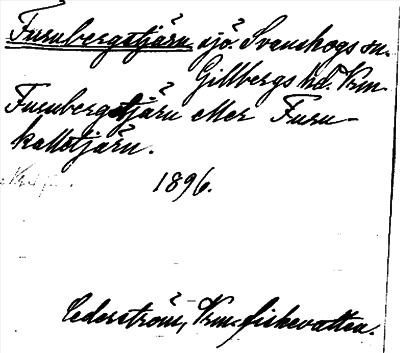 Furubergstjärn sjö. Svanskogs sn.
Gillbergs hd. Vrm
Furubergstjärn eller Furu-
kallstjärn.
1896.
Cederström, Vrm. fiskevatten.